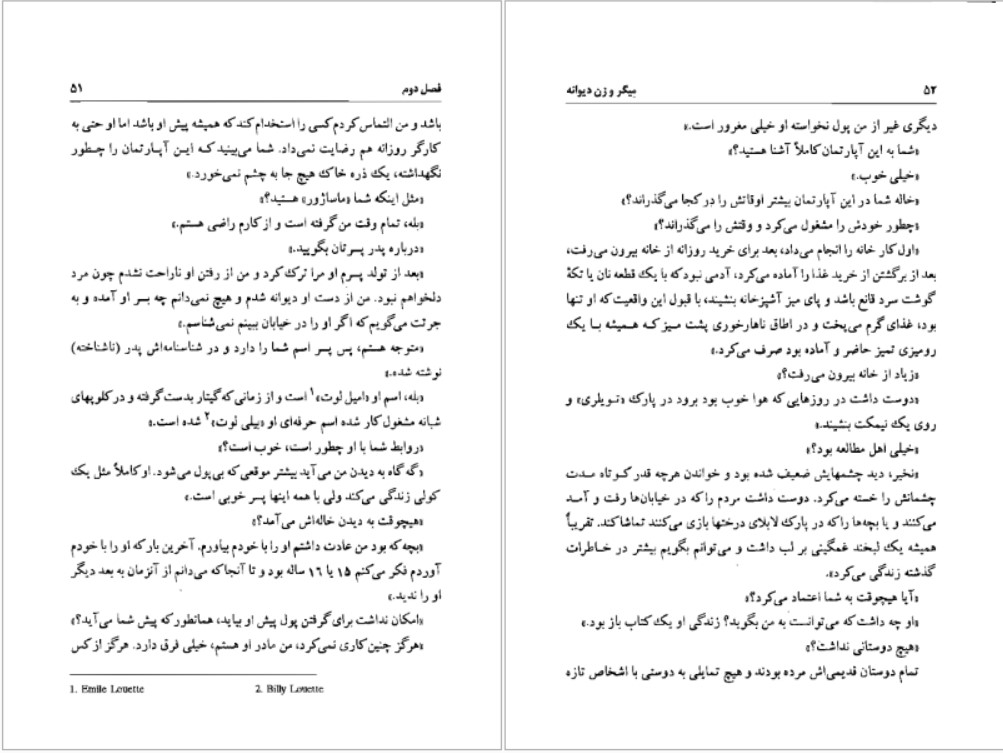 فصل دوم ۵۱
باشد و من التماس کردم کسی را استخدام کند که همیشه پیش او باشد اما او حتی به
کارگر روزانه هم رضایت نمی‌داد. شما می‌بینید که این آپارتمان را چطور
نگهداشته، یک ذره خاک هیچ جا به چشم نمی‌خورد.»
«مثل اینکه شما «ماساژور» هستید؟»
«بله، تمام وقت من گرفته است و از کارم راضی هستم.»
«درباره پدر پسرتان بگویید.»
«بعد از تولد پسرم او مرا ترک کرد و من از رفتن او ناراحت نشدم چون مرد
دلخواهم نبود. من از دست او دیوانه شدم و هیچ نمی‌دانم چه بسر او آمده و به
جرئت می‌گویم که اگر او را در خیابان ببینم نمی‌شناسم.»
«متوجه هستم، پس پسر اسم شما را دارد و در شناسنامه‌اش پدر (ناشناخته)
نوشته شده.»
«بله، اسم او «امیل لوت»۱ است و از زمانی که گیتار بدست گرفته و در کلوپهای
شبانه مشغول کار شده اسم حرفه‌ای او «بیلی لوت»۲ شده است.»
«روابط شما با او چطور است، خوب است؟»
«گه گاه به دیدن من می‌آید بیشتر موقعی که بی‌پول می‌شود. او کاملاً مثل یک
کولی زندگی می‌کند ولی با همه اینها پسر خوبی است.»
«هیچوقت به دیدن خاله‌اش می‌آمد؟»
«بچه که بود من عادت داشتم او را با خودم بیاورم. آخرین بار که او را با خودم
آوردم فکر می‌کنم ۱۵ یا ۱۶ ساله بود و تا آنجا که می‌دانم از آنزمان به بعد دیگر
او را ندید.»
«امکان نداشت برای گرفتن پول پیش او بیاید، همانطور که پیش شما می‌آید؟»
«هرگز چنین کاری نمی‌کرد، من مادر او هستم، خیلی فرق دارد. هرگز از کس
1. Emile Louette 2. Billy Louette
۵۲ میگر و زن دیوانه
دیگری غیر از من پول نخواسته او خیلی مغرور است.»
«شما به این آپارتمان کاملاً آشنا هستید؟»
«خیلی خوب.»
«خاله شما در این آپارتمان بیشتر اوقاتش را در کجا می‌گذراند؟»
«چطور خودش را مشغول می‌کرد و وقتش را می‌گذراند؟»
«اول کار خانه را انجام می‌داد، بعد برای خرید روزانه از خانه بیرون می‌رفت،
بعد از برگشتن از خرید غذا را آماده می‌کرد، آدمی نبود که با یک قطعه نان یا تکهٔ
گوشت سرد قانع باشد و پای میز آشپزخانه بنشیند، با قبول این واقعیت که او تنها
بود، غذای گرم می‌پخت و در اطاق ناهارخوری پشت میز که همیشه با یک
رومیزی تمیز حاضر و آماده بود صرف می‌کرد.»
«زیاد از خانه بیرون می‌رفت؟»
«دوست داشت در روزهایی که هوا خوب بود برود در پارک «تویلری» و
روی یک نیمکت بنشیند.»
«خیلی اهل مطالعه بود؟»
«نخیر، دید چشمهایش ضعیف شده بود و خواندن هرچه قدر کوتاه مدت
چشمانش را خسته می‌کرد. دوست داشت مردم را که در خیابان‌ها رفت و آمد
می‌کنند و یا بچه‌ها را که در پارک لابلای درختها بازی می‌کنند تماشا کند. تقریباً
همیشه یک لبخند غمگینی بر لب داشت و می‌توانم بگویم بیشتر در خاطرات
گذشته زندگی می‌کرد».
«آیا هیچوقت به شما اعتماد می‌کرد؟»
«او چه داشت که می‌توانست به من بگوید؟ زندگی او یک کتاب باز بود.»
«هیچ دوستانی نداشت؟»
تمام دوستان قدیمی‌اش مرده بودند و هیچ تمایلی به دوستی با اشخاص تازه